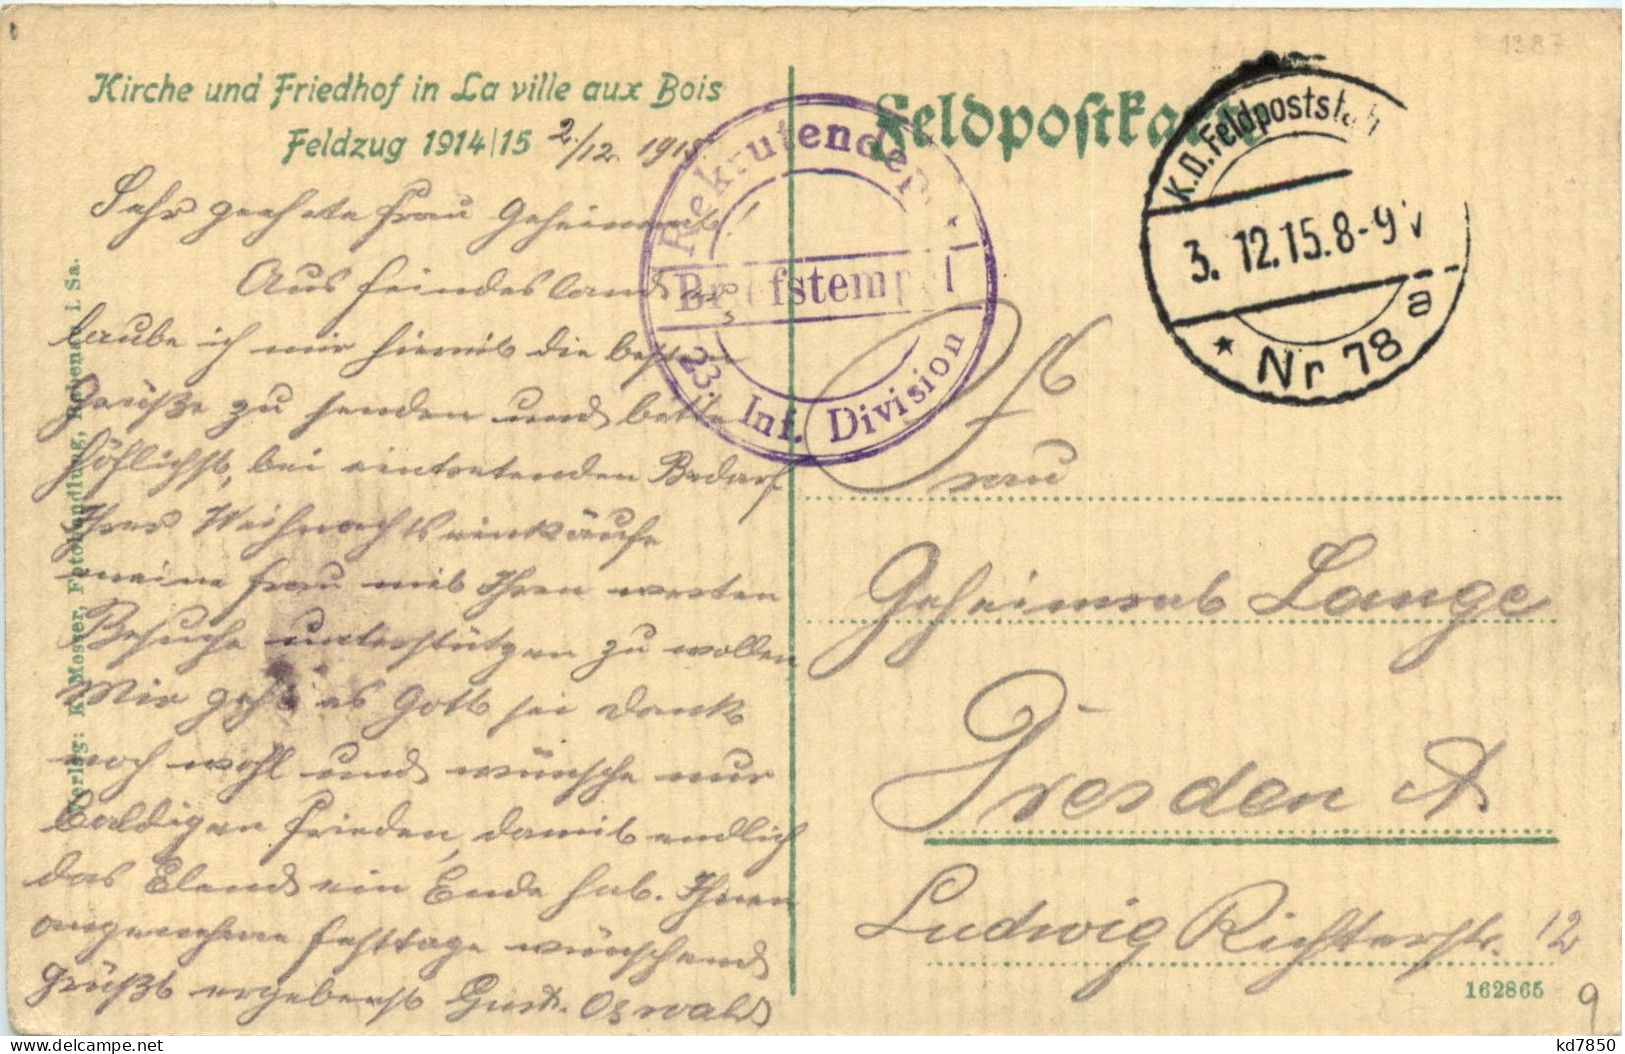 Kirche und Friedhof in La ville aux Bois
Feldzug 1914/15
2./12. 1915.
Sehr geehrte Frau Geheimrat!
Aus Feindesland er-
laube ich mir hiermit die besten
Grüße zu senden und bitte
höflichst, bei eintretenden Bedarf
Ihrer Weihnachtseinkäufe
meine Frau mit Ihren werten
Besuche unterstützen zu wollen
Mir geht es Gott sei dank
noch wohl und wünsche nur
baldigen Frieden, damit endlich
das Elend ein Ende hab. Ihnen
angenehme Festtage wünschend
grüßt ergebenst Gust. Oswald
Verlag: K. Messer, Fotohandlung,
i. Sa.
Rekrutendep.
Briefstempel
23. Inf. Division
Feldpostka
K.D. Feldpoststat
3. 12. 15. 8-9 V
* Nr 78 a
Frau
Geheimrat Lange
Dresden A
Ludwig Richterstr. 12
162865
9
1387
kd7850